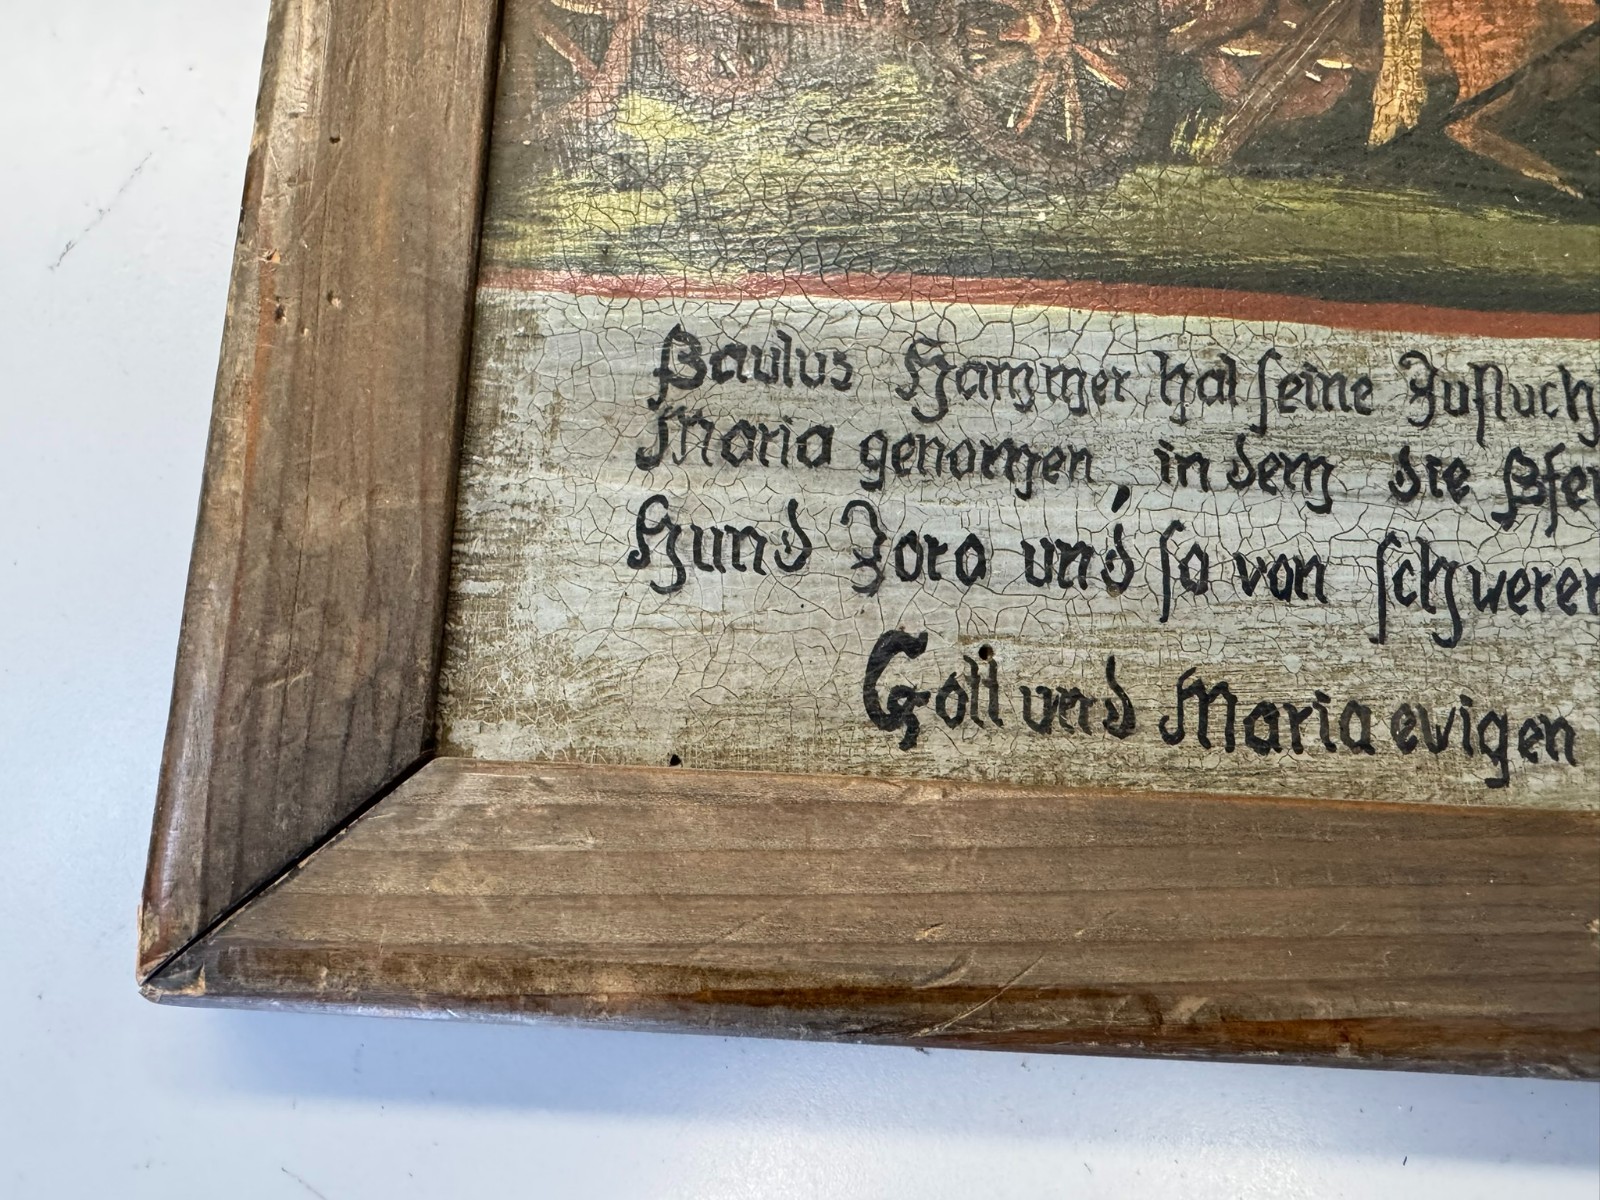 Paulus Hammer hat seine Zufluch
Maria genommen, in dem die Pfer
Hund Zora und so von schwerer
Gott und Maria ewigen